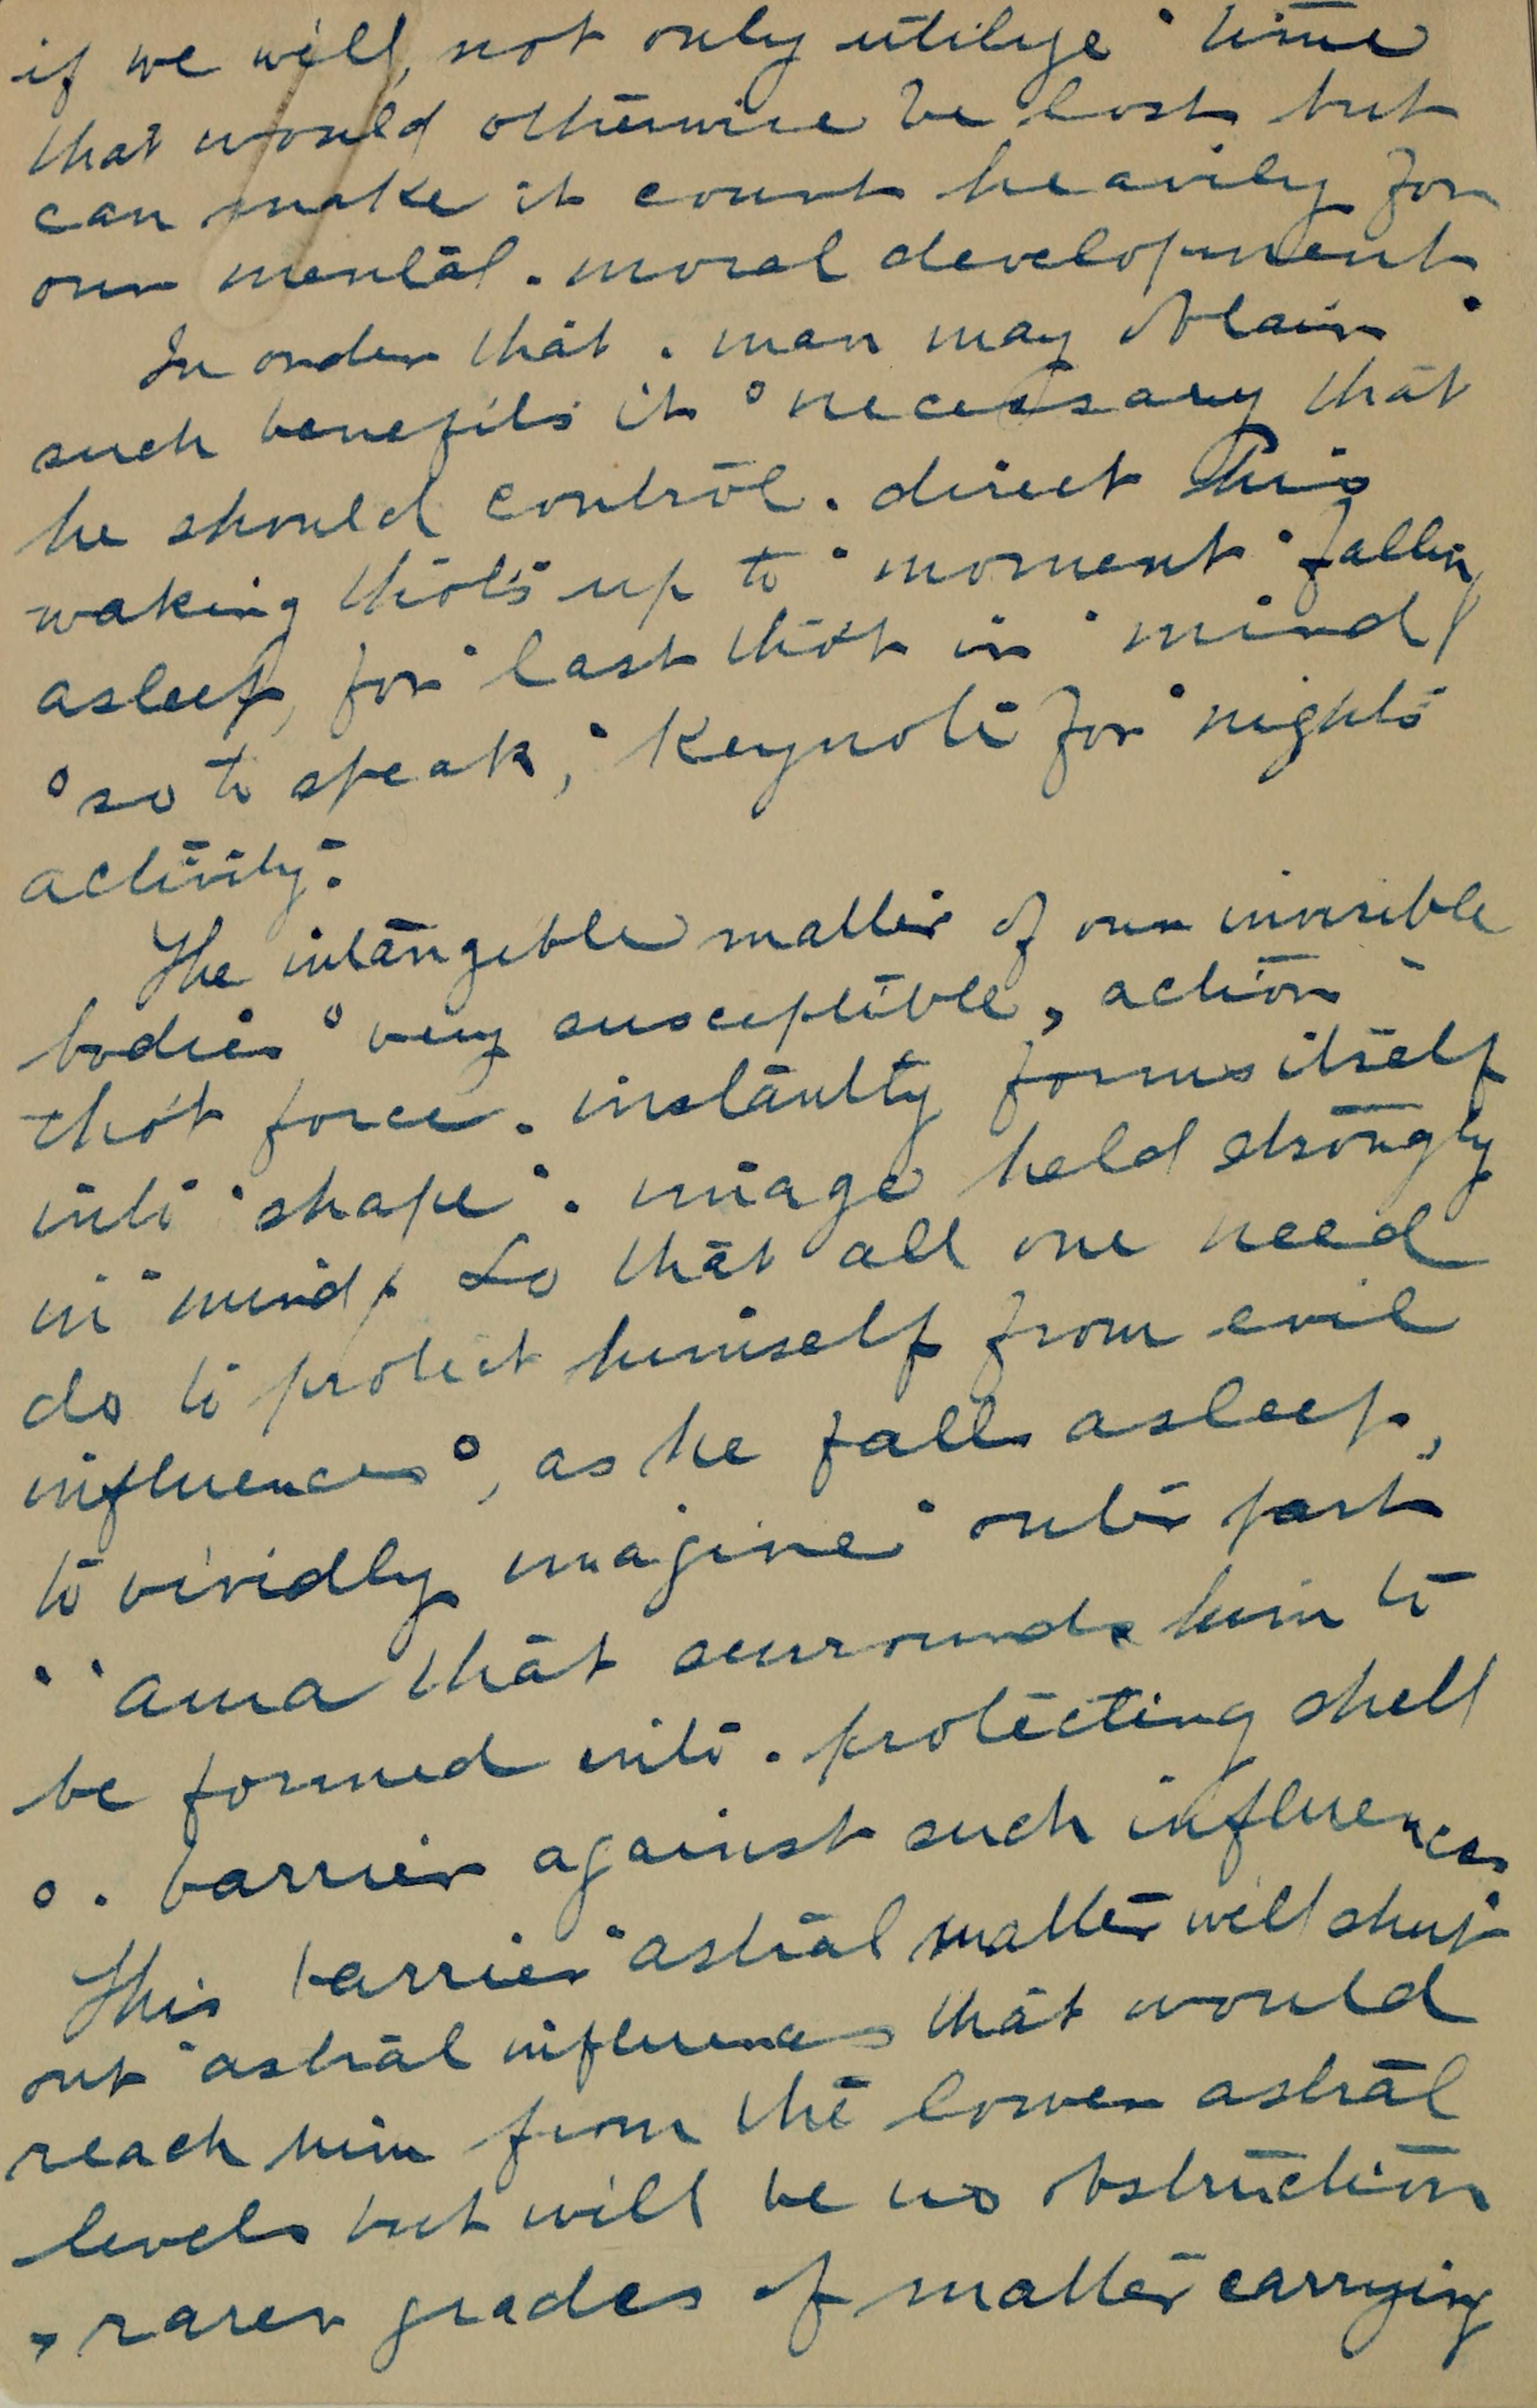 if we will, not only utilize · time
that would otherwise be lost but
can make it count heavily for
our mental . moral development.
In order that . man may obtain
such benefits it ° necessary that
he should control . direct his
waking thots up to · moment · falling
asleep, for · last thot in · mind
° so to speak, · Keynote for · nights
activity.
The intangible matter of our invisible
bodies ° very susceptible , action
thot force . instantly forms itself
into · shape · . image held strongly
in · mind. So that all one need
do to protect himself from evil
influences °, as he falls asleep,
to vividly imagine · outer part
· · aura that surrounds him to
be formed into . protecting shell
o . barrier against such influences
This barrier · astral matter will shut
out · astral influences that would
reach him from the lower astral
levels but will be no obstruction
, rarer grades of matter carrying